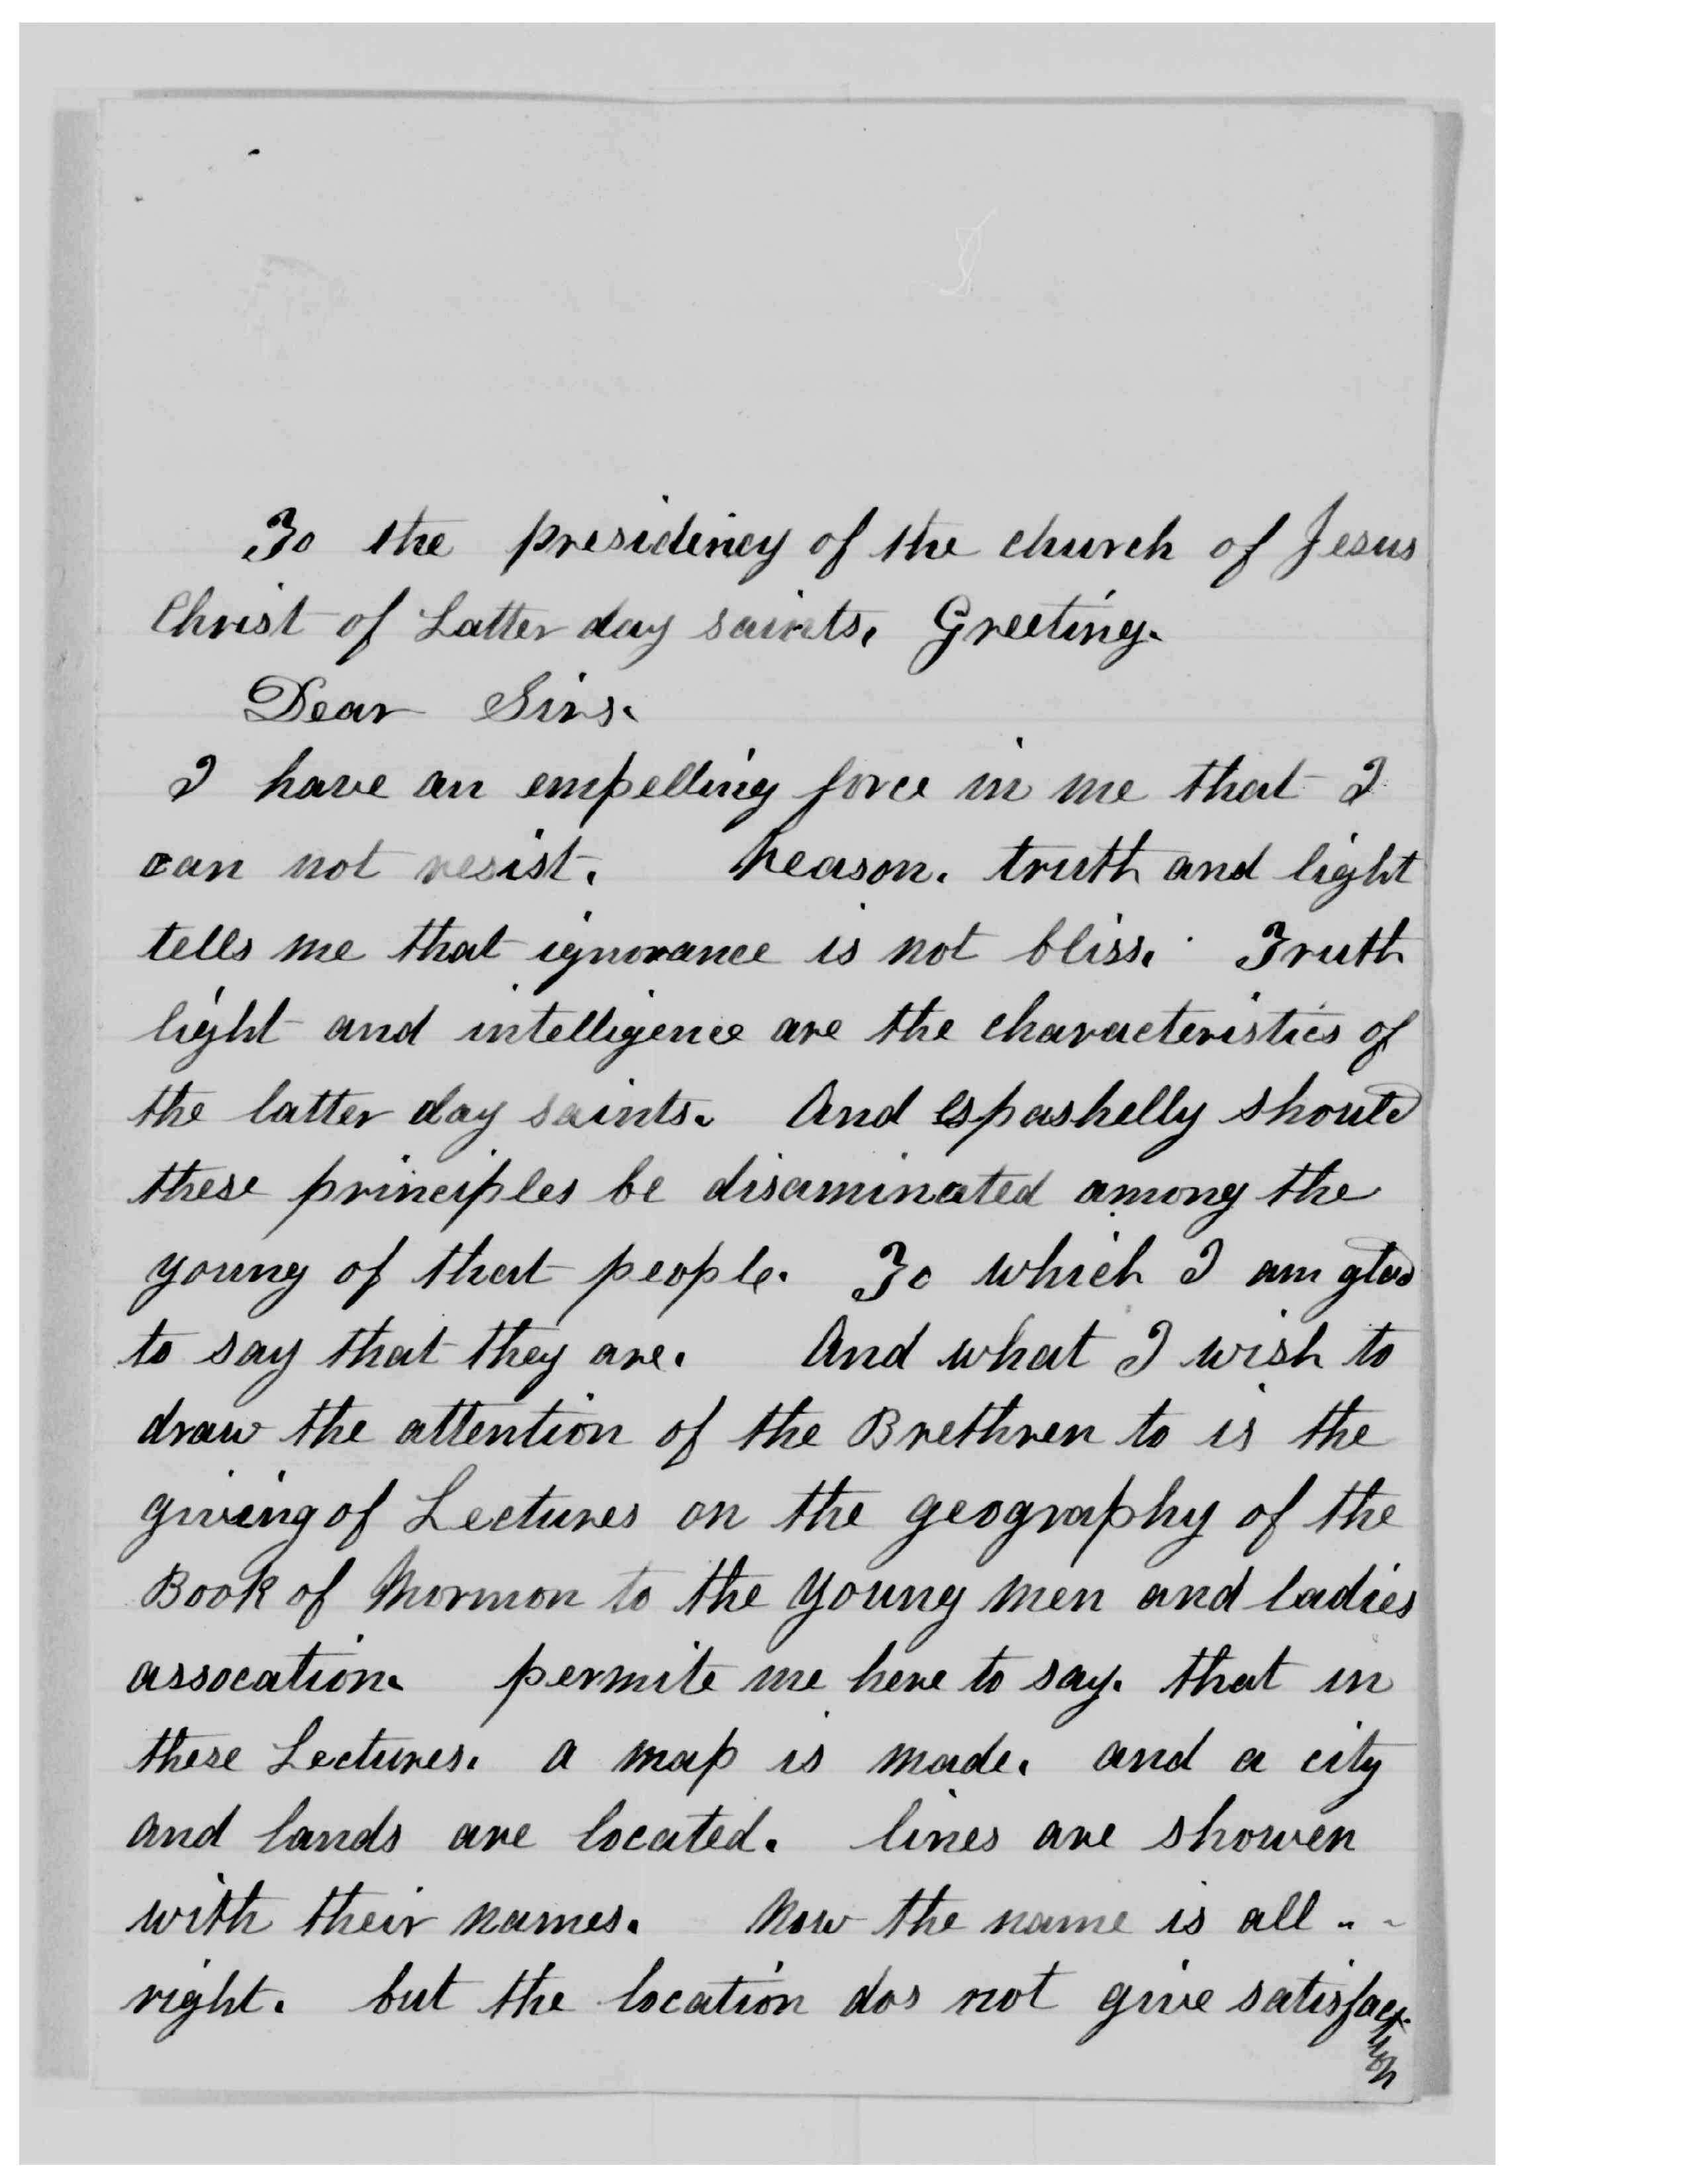 To the presidincy of the church of Jesus
Christ of Latter day saints. Greeting.
Dear Sirs.
I have an empelling force in me that I
can not resist. Reason. truth and light
tells me that ignorance is not bliss. Truth
light and intelligence are the characteristics of
the latter day saints. And espashelly should
these principles be disaminated among the
young of that people. To which I am glad
to say that they are. And what I wish to
draw the attention of the Brethren to is the
giveing of Lectures on the geography of the
Book of Mormon to the young men and ladies
assocation. permite me here to say. that in
these Lectures. a map is made. and a city
and lands are located. lines are showen
with their names. Now the name is all - -
right. but the location dos not give satisfaction